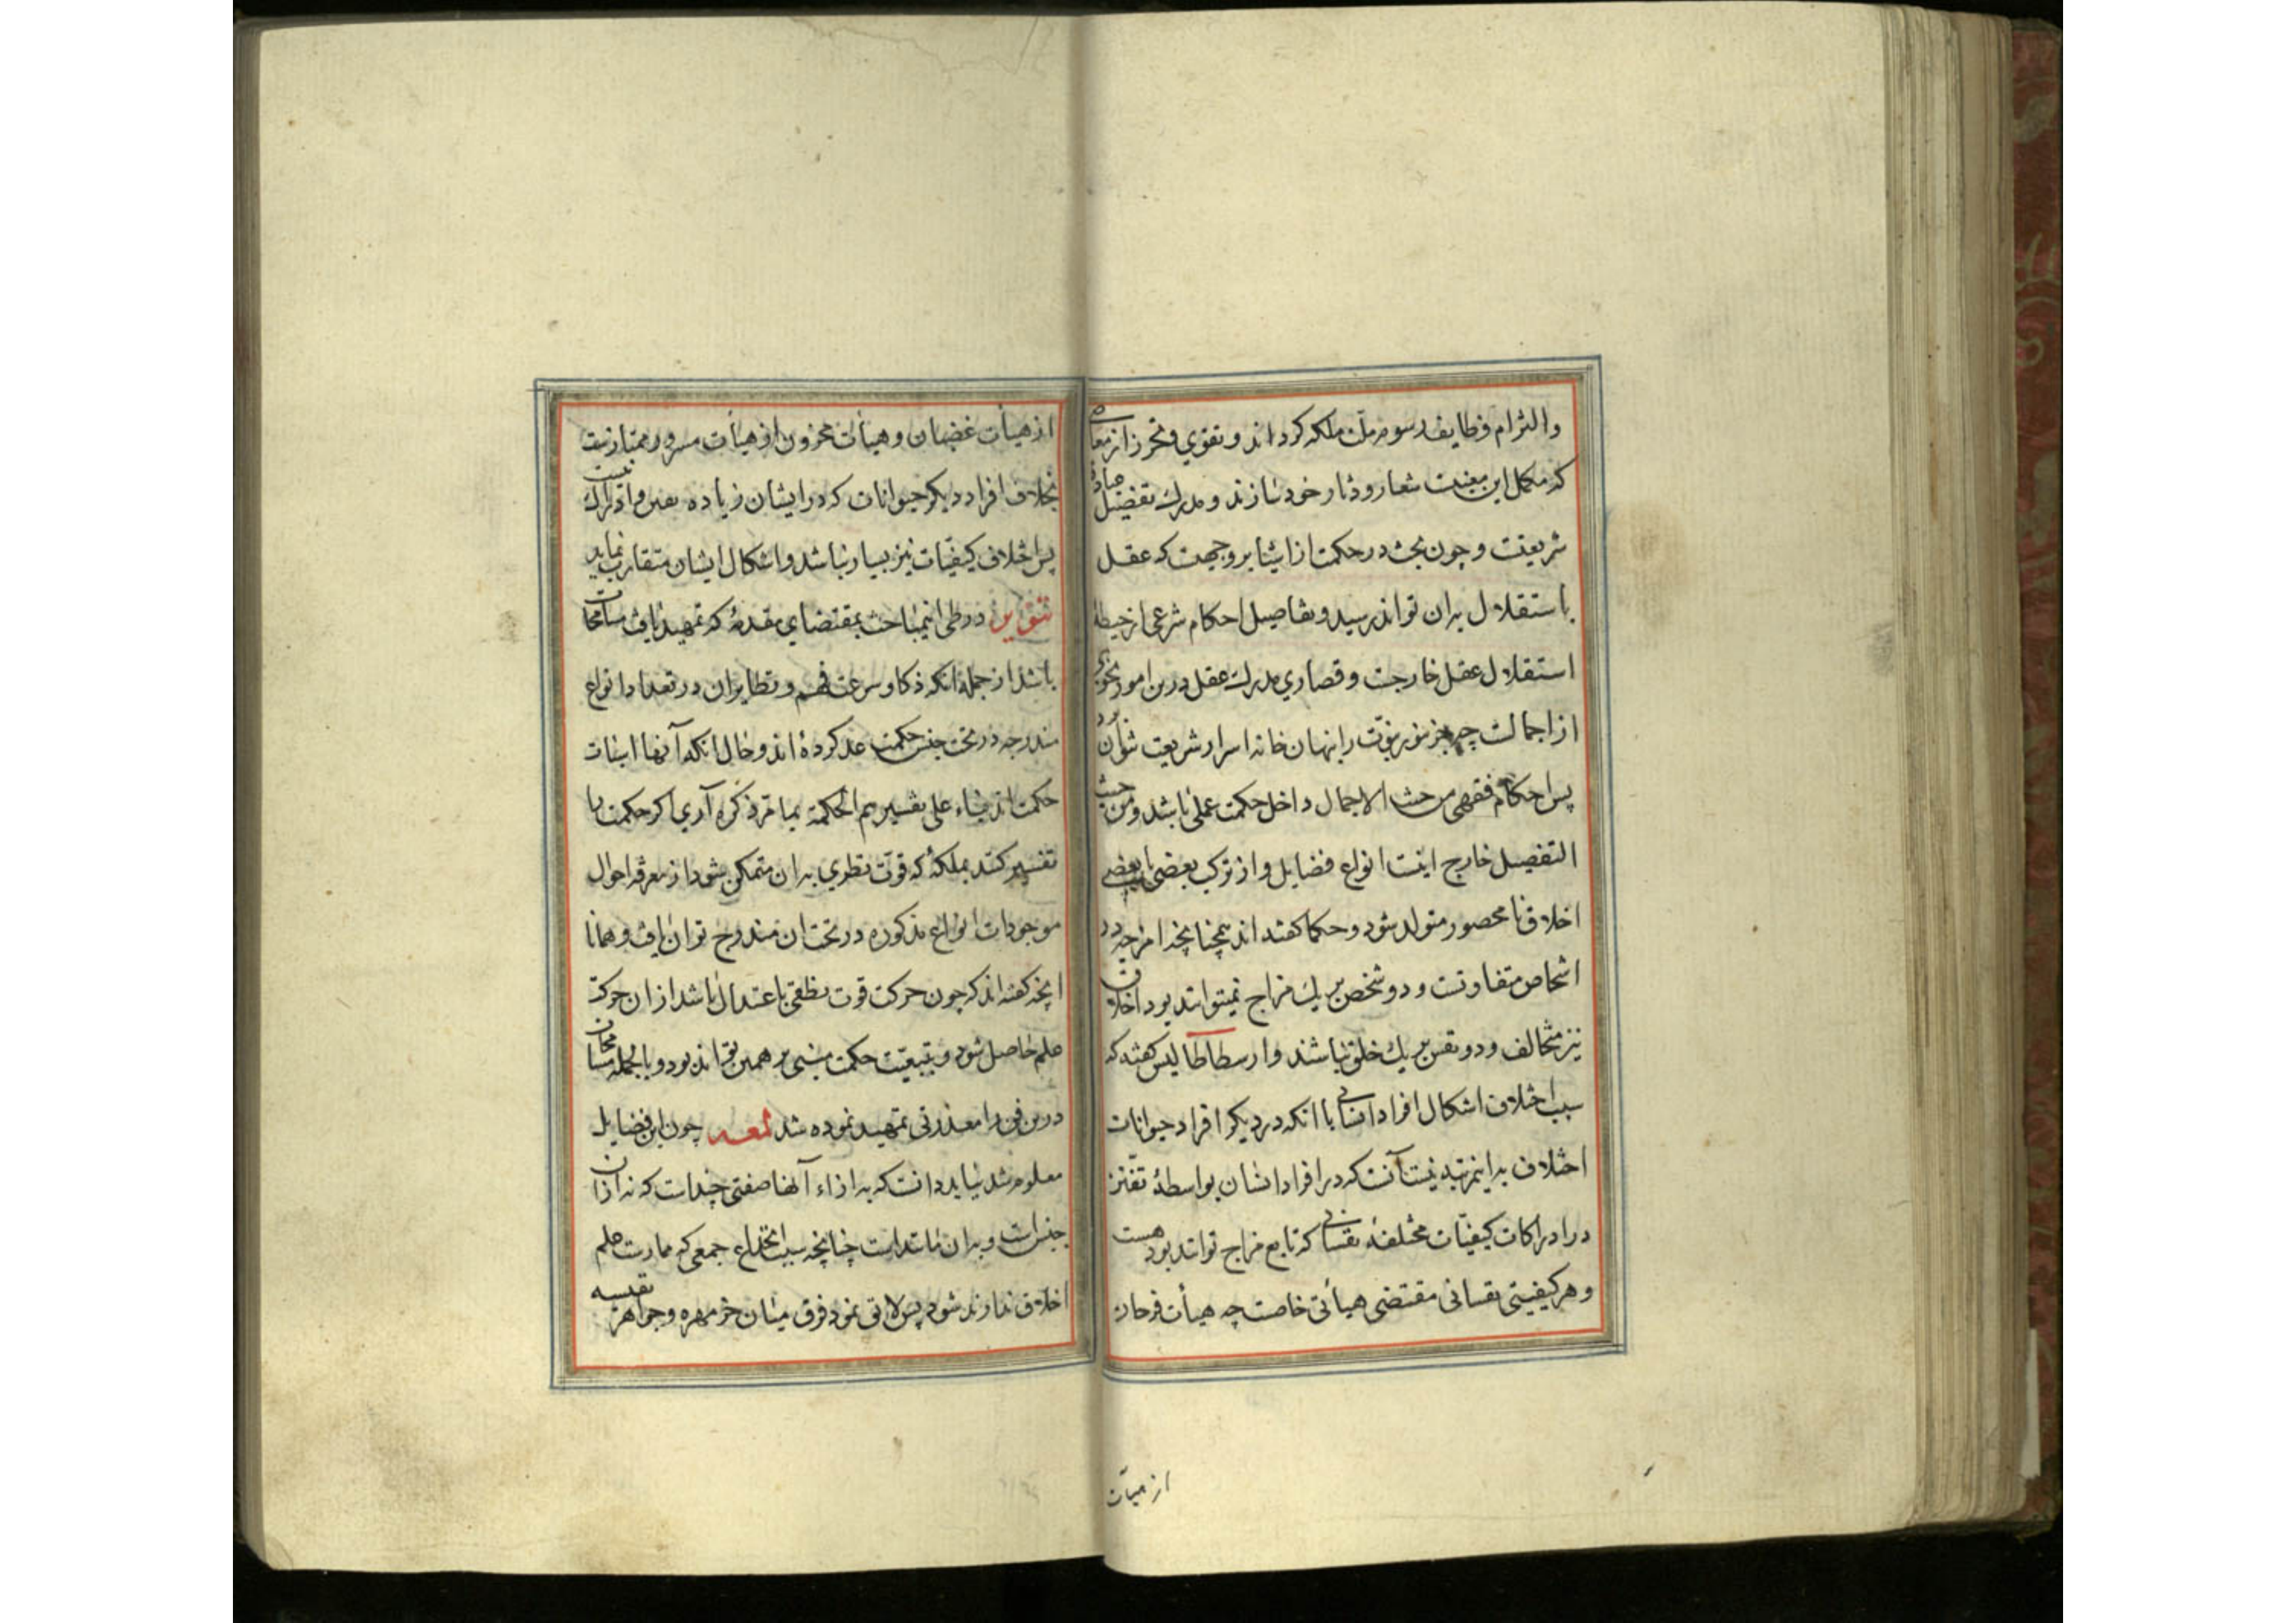 والتزام وظایف رسوم ملت ملکه کرداند و تقوی و تحرز از معاصی
که مکمل این معنیست شعار و دثار خود سازند و مدرک تفصیل عبادات
شریعتست و چون بحث در حکمت از اشیا بر وجهیست که عقل
باستقلال بدان تواند رسید و تفاصیل احکام شرعی از حیطهٔ
استقلال عقل خارجست و قصاری مدرک عقل درین امور بنحوی
از اجمالست چه جز بنور نبوت را بنهان خانه اسرار شریعت نتوان برد
پس احکام فقهی من حیث الاجمال داخل حکمت عملی باشد و من حیث
التفصیل خارج اینست انواع فضایل و از ترکب بعضی با بعضی
اخلاق نا محصور متولد شود و حکما کفته اند همچنانچه امزجه در
اشخاص متفاوتست و دو شخص بر یک مزاج نمیتواند بود اخلاق
نیز متخالف و دو نفس بر یک خلق نباشند و ارسطاطالیس کفته که
سبب اختلاف اشکال افراد انسانی با انکه در دیکر افراد حیوانات
اختلاف بداینمرتبه نیست آنست که در افراد انسان بواسطهٔ تفنن
در ادراکات کیفیّات مختلفهٔ نفسانی که تابع مزاج تواند بود هست
و هر کیفیتی نفسانی مقتضی هیأتی خاصست چه هیأت فرحان
از هیأت
از هیأت غضبان و هیأت محزون از هیأت مسرور ممتازست
بخلاف افراد دیکر حیوانات که در ایشان زیاده تفنن در ادراک نیست
پس اختلاف کیفیّات نیز بسیار نباشد و اشکال ایشان متقارب نماید
تنویر در طی اینمباحث بمقتضای مقدمهٔ که تمهید یافت مسامحات
باشد از جمله انکه ذکا و سرعت فهم و نظایر ان در تعداد انواع
مندرجه در تحت جنس حکمت عد کرده اند و حال انکه آنها اسباب
حکمت اند بناء علی تفسیرهم الحکمة بما مرّ ذکره آری اکر حکمت را
تفسیر کنند بملکهٔ که قوّت نظری بدان متمکن شود از معرفه احوال
موجودات انواع مذکوره در تحت ان مندرج توان یافت و همانا
انچه کفته اند که چون حرکت قوت نطقی باعتدال باشد از ان حرکت
علم حاصل شود و بتبعیّت حکمت مبنی بر همین تواند بود و بالجمله مسامحان
درین فن را معذرتی تمهید نموده شد لمعه چون این فضایل
معلوم شد بباید دانست که به ازاء آنها صفتی چند است که نه از ان
جنس است و بدان مانند است چنانچه سبب انخداع جمعی که ممارست علم
اخلاق ندارند شود پس لایق نمود فرق میان خرمهره و جواهر نفیسه